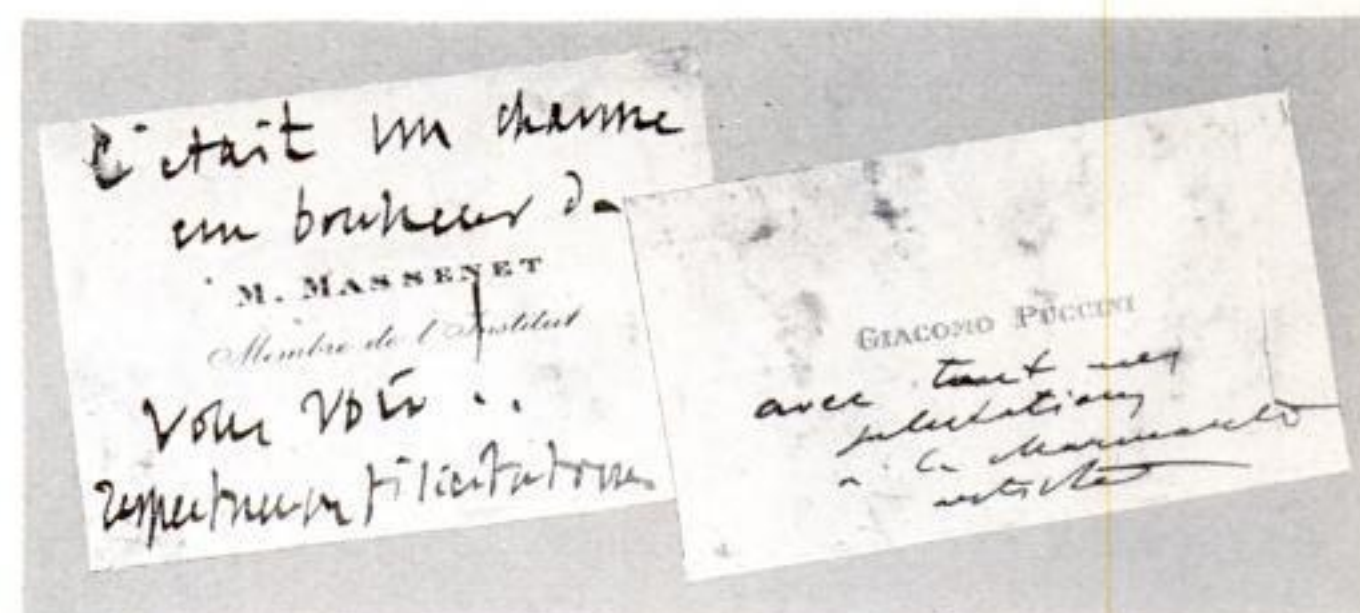 C'était un charme
un bonheur de
M. MASSENET
Membre de l'Institut
vous voir..
respectueuses félicitations
GIACOMO PUCCINI
avec tout mes
salutations
à la charmante
artiste